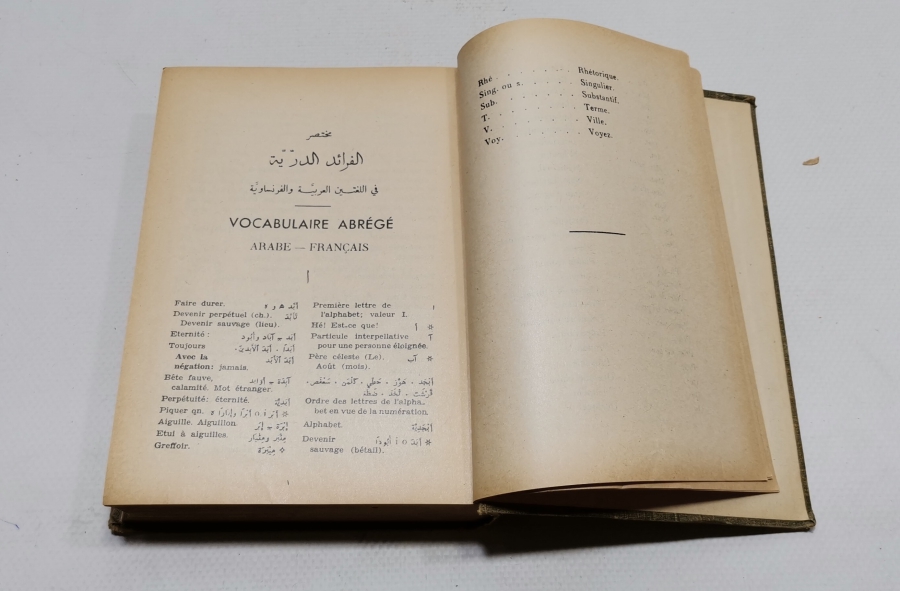 Rhé . . . . . . . Rhétorique.
Sing. ou s. . . . . . Singulier.
Sub. . . . . . . . Substantif.
T. . . . . . . . Terme.
V. . . . . . . . Ville.
Voy. . . . . . . . Voyez.
مختصر
الفرائد الدرّيّة
في اللغتين العربيَّة والفرنساويَّة
VOCABULAIRE ABRÉGÉ
ARABE — FRANÇAIS
ا
Première lettre de ا
l'alphabet; valeur I.
Hé! Est-ce que! أ *
Particule interpellative آ
pour une personne éloignée.
Père céleste (Le). آب *
Août (mois).
أبجد ، هوّز ، حطّي ، كلمن ، سعفص ،
قرشت ، ثخذ ، ضظغ
Ordre des lettres de l'alpha-
bet en vue de la numération.
Alphabet. أبجديّة
Devenir أبد o أ أبودًا *
sauvage (bétail).
Faire durer. أبّد ه و ه
Devenir perpétuel (ch.). تأبّد
Devenir sauvage (lieu).
Eternité: أبد ج آباد وأبود
Toujours أبدًا ، أبد الأبدين ،
Avec la أبد الأبد
négation: jamais.
Bête fauve, آبدة ج أوابد
calamité. Mot étranger.
Perpétuité: éternité. أبديّة
Piquer qn. * أبر o أبرًا وإبارًا ه
Aiguille. Aiguillon. إبرة ج إبر
Etui à aiguilles. مئبر ومئبار
Greffoir. * مئبرة
١